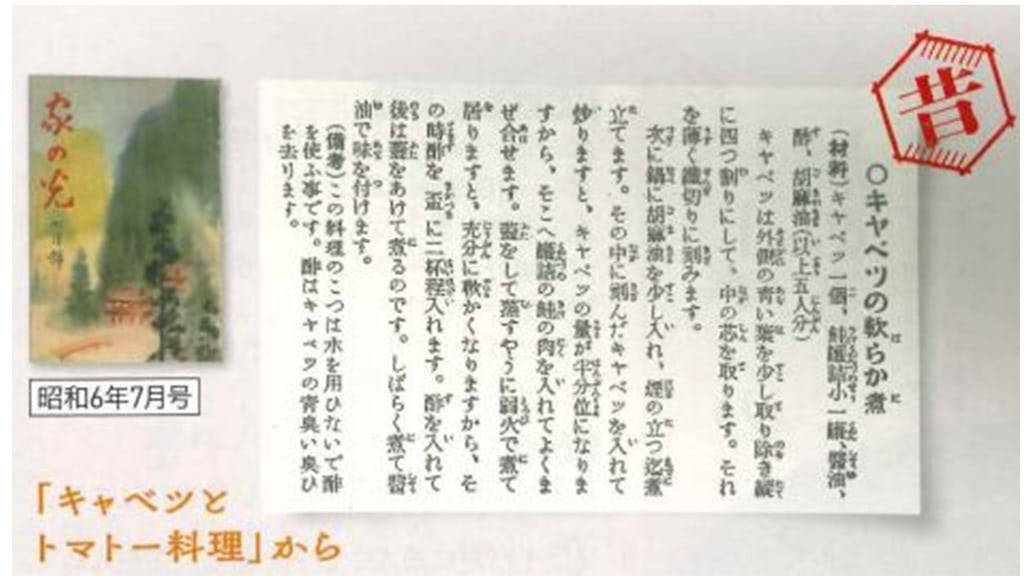 昔
○キャベツの軟らか煮
(材料)キャベツ一個、鮭罐詰小一罐、醤油、
酢、胡麻油(以上五人分)
キャベツは外側の青い葉を少し取り除き縦
に四つ割りにして、中の芯を取ります。それ
を薄く繊切りに刻みます。
次に鍋に胡麻油を少し入れ、煙の立つ迄煮
立てます。その中に刻んだキャベツを入れて
炒りますと、キャベツの量が半分位になりま
すから、そこへ罐詰の鮭の肉を入れてよくま
ぜ合せます。蓋をして蒸すやうに弱火で煮て
居りますと、充分に軟かくなりますから、そ
の時酢を盃に二杯程入れます。酢を入れて
後は蓋をあけて煮るのです。しばらく煮て醤
油で味を付けます。
(備考)この料理のこつは水を用ひないで酢
を使ふ事です。酢はキャベツの青臭い臭ひ
を去ります。
家の光
七月号
昭和6年7月号
「キャベツと
トマトー料理」から